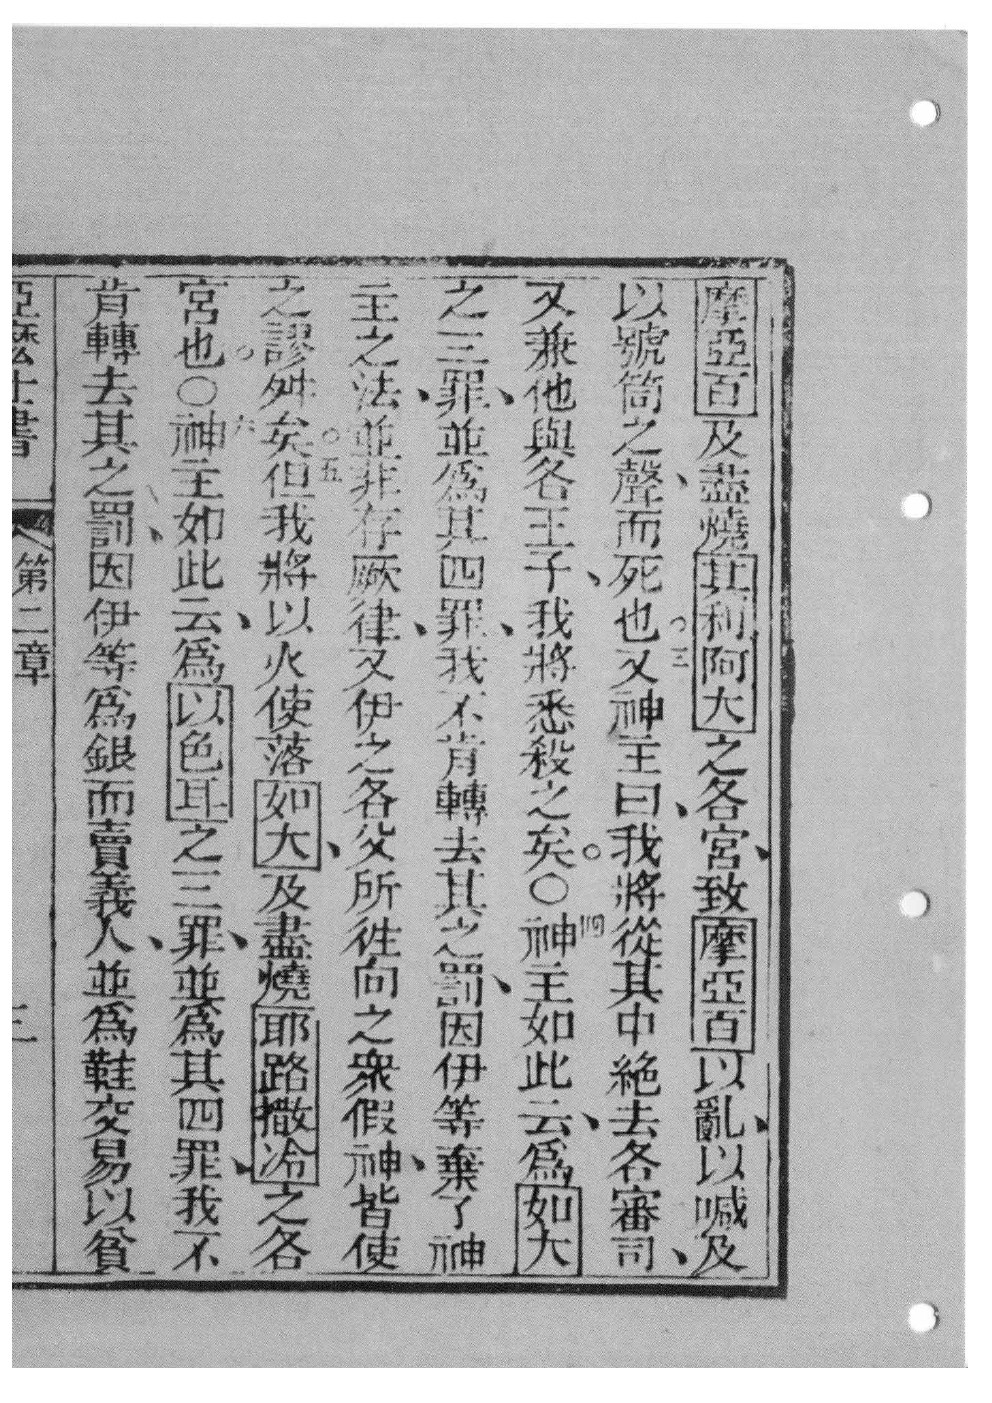 摩亞百及盡燒其利阿大之各宮、致摩亞百以亂、以喊及
以號筒之聲、而死也。三又神主曰、我將從其中絶去各審司、
又兼他與各王子、我將悉殺之矣。〇四神主如此云、爲如大
之三罪、並爲其四罪、我不肯轉去其之罰、因伊等棄了神
主之法、並非存厥律、又伊之各父所徃向之衆假神、皆使
之謬舛矣。五但我將以火使落如大、及盡燒耶路撒冷之各
宮也。〇六神主如此云、爲以色耳之三罪、並爲其四罪、我不
肯轉去其之罰、因伊等爲銀而賣義人、並爲鞋交易以貧
亞麽士書 第二章 三